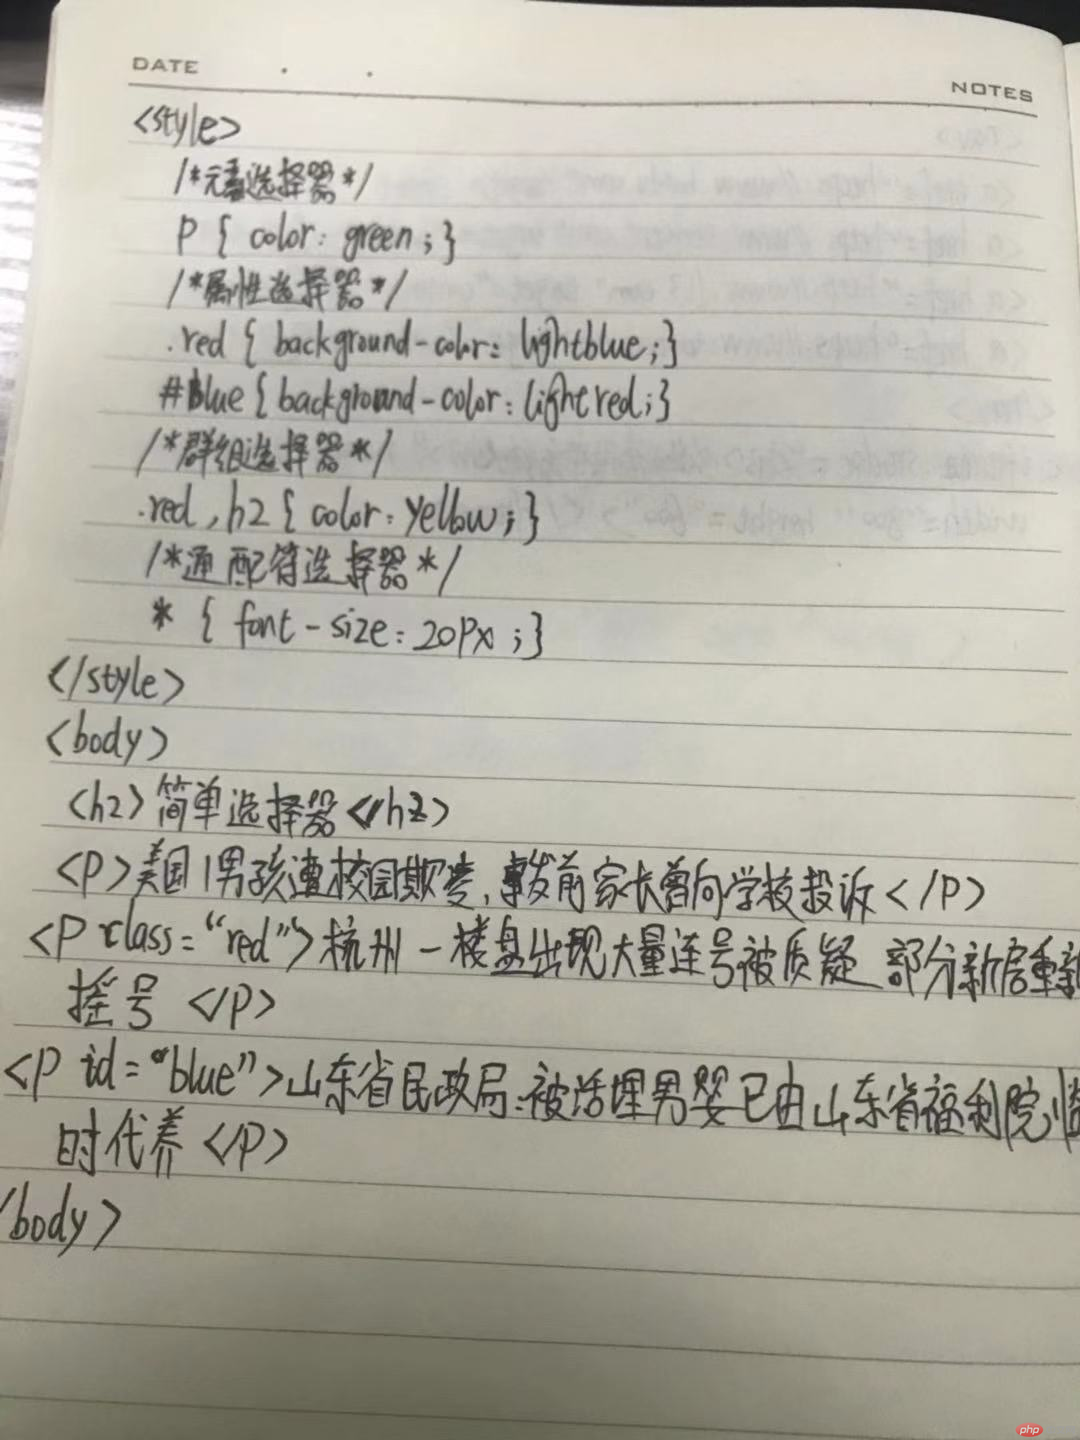 DATE . .
NOTES
<style>
/*元素选择器*/
p { color: green; }
/*属性选择器*/
.red { background-color: lightblue; }
#blue { background-color: lightred; }
/*群组选择器*/
.red, h2 { color: yellow; }
/*通配符选择器*/
* { font-size: 20px; }
</style>
<body>
<h2>简单选择器</h2>
<p>美国1男孩遭校园欺凌,事发前家长曾向学校投诉</p>
<p class="red">杭州一楼盘出现大量连号被质疑 部分新房重新
摇号</p>
<p id="blue">山东省民政局:被活埋男婴已由山东省福利院临
时代养</p>
/body>
php